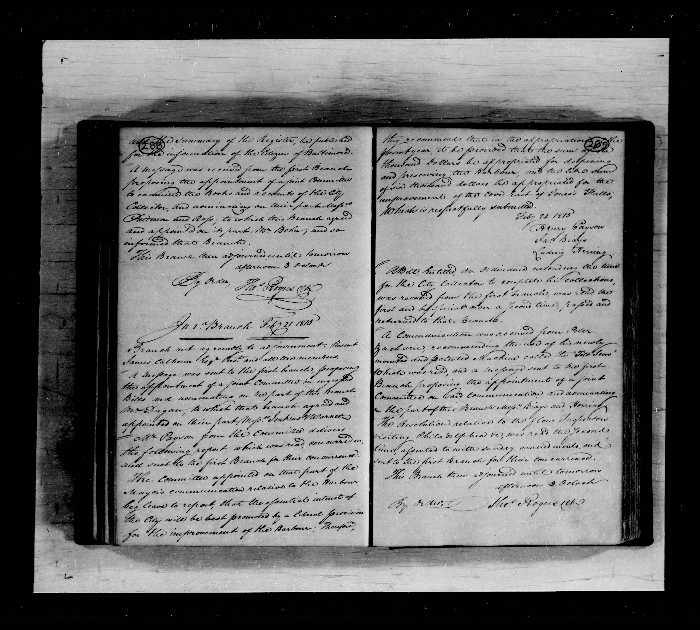 288
the Summary of the Register, be published
for the information of the Citizens of Baltimore.
A message was received from the first Branch
proposing the appointment of a joint Committee
to examine the Books and accounts of the City
Collector, and nominating on their part Messrs
and Ross; to which this Branch agreed
and appointed on its part Mr Bohn; and so
informed that Branch.
This Branch then adjourned until tomorrow
afternoon 3 oClock
By order Thos Rogers Clk
In 2d Branch Feby 21 1815
Branch met agreeably to adjournment; Present
James Calhoun Esqr Prest and members.
A message was sent to the first branch proposing
the appointment of a joint Committee on engrossed
Bills and nominating on the part of this branch
Mr Dugan; to which that branch agreed and
appointed on their part, Messrs Jenkins & Warner
Mr Payson from the Committee delivers
the following report which was read concurred in,
and sent to the first Branch for their concurrence
The Committee appointed on that part of the
Mayor's communication relative to the Harbour
beg leave to report, that the essential interest of
the City will be best promoted by a liberal provision
for the improvement of the Harbour; Therefore,
289
they recommend that in the appropriation for the
present year to be provided that the sum of
thousand Dollars be appropriated for deepening
and preserving the Harbour, and the like sum
of six thousand dollars be appropriated for the
improvement of the East side of Jones's Falls,
Which is respectfully submitted
Feby 20 1815
Henry Payson
Jas Biays
Ludwig Herring
A Bill Entitled an Ordinance extending the time
for the City Collector to complete his Collections,
was received from the first branch, was read the
first and by a second time, passed and
returned to that Branch.
A Communication was received from Peter
Zacharie; recommending the use of his newly
invented and patented Machine called the
which was read, and a message sent to the first
Branch proposing the appointment of a joint
Committee on said communication and nominating
on the part of this Branch Messrs Biays and Herring
The Resolution relative to the flour Inspectors
visiting Philadelphia &c, was read the second
time, assented to with sundry amendments, and
sent to the first branch for their concurrence.
This Branch then adjourned until tomorrow
afternoon 3 oClock
By order. Thos Rogers Clk